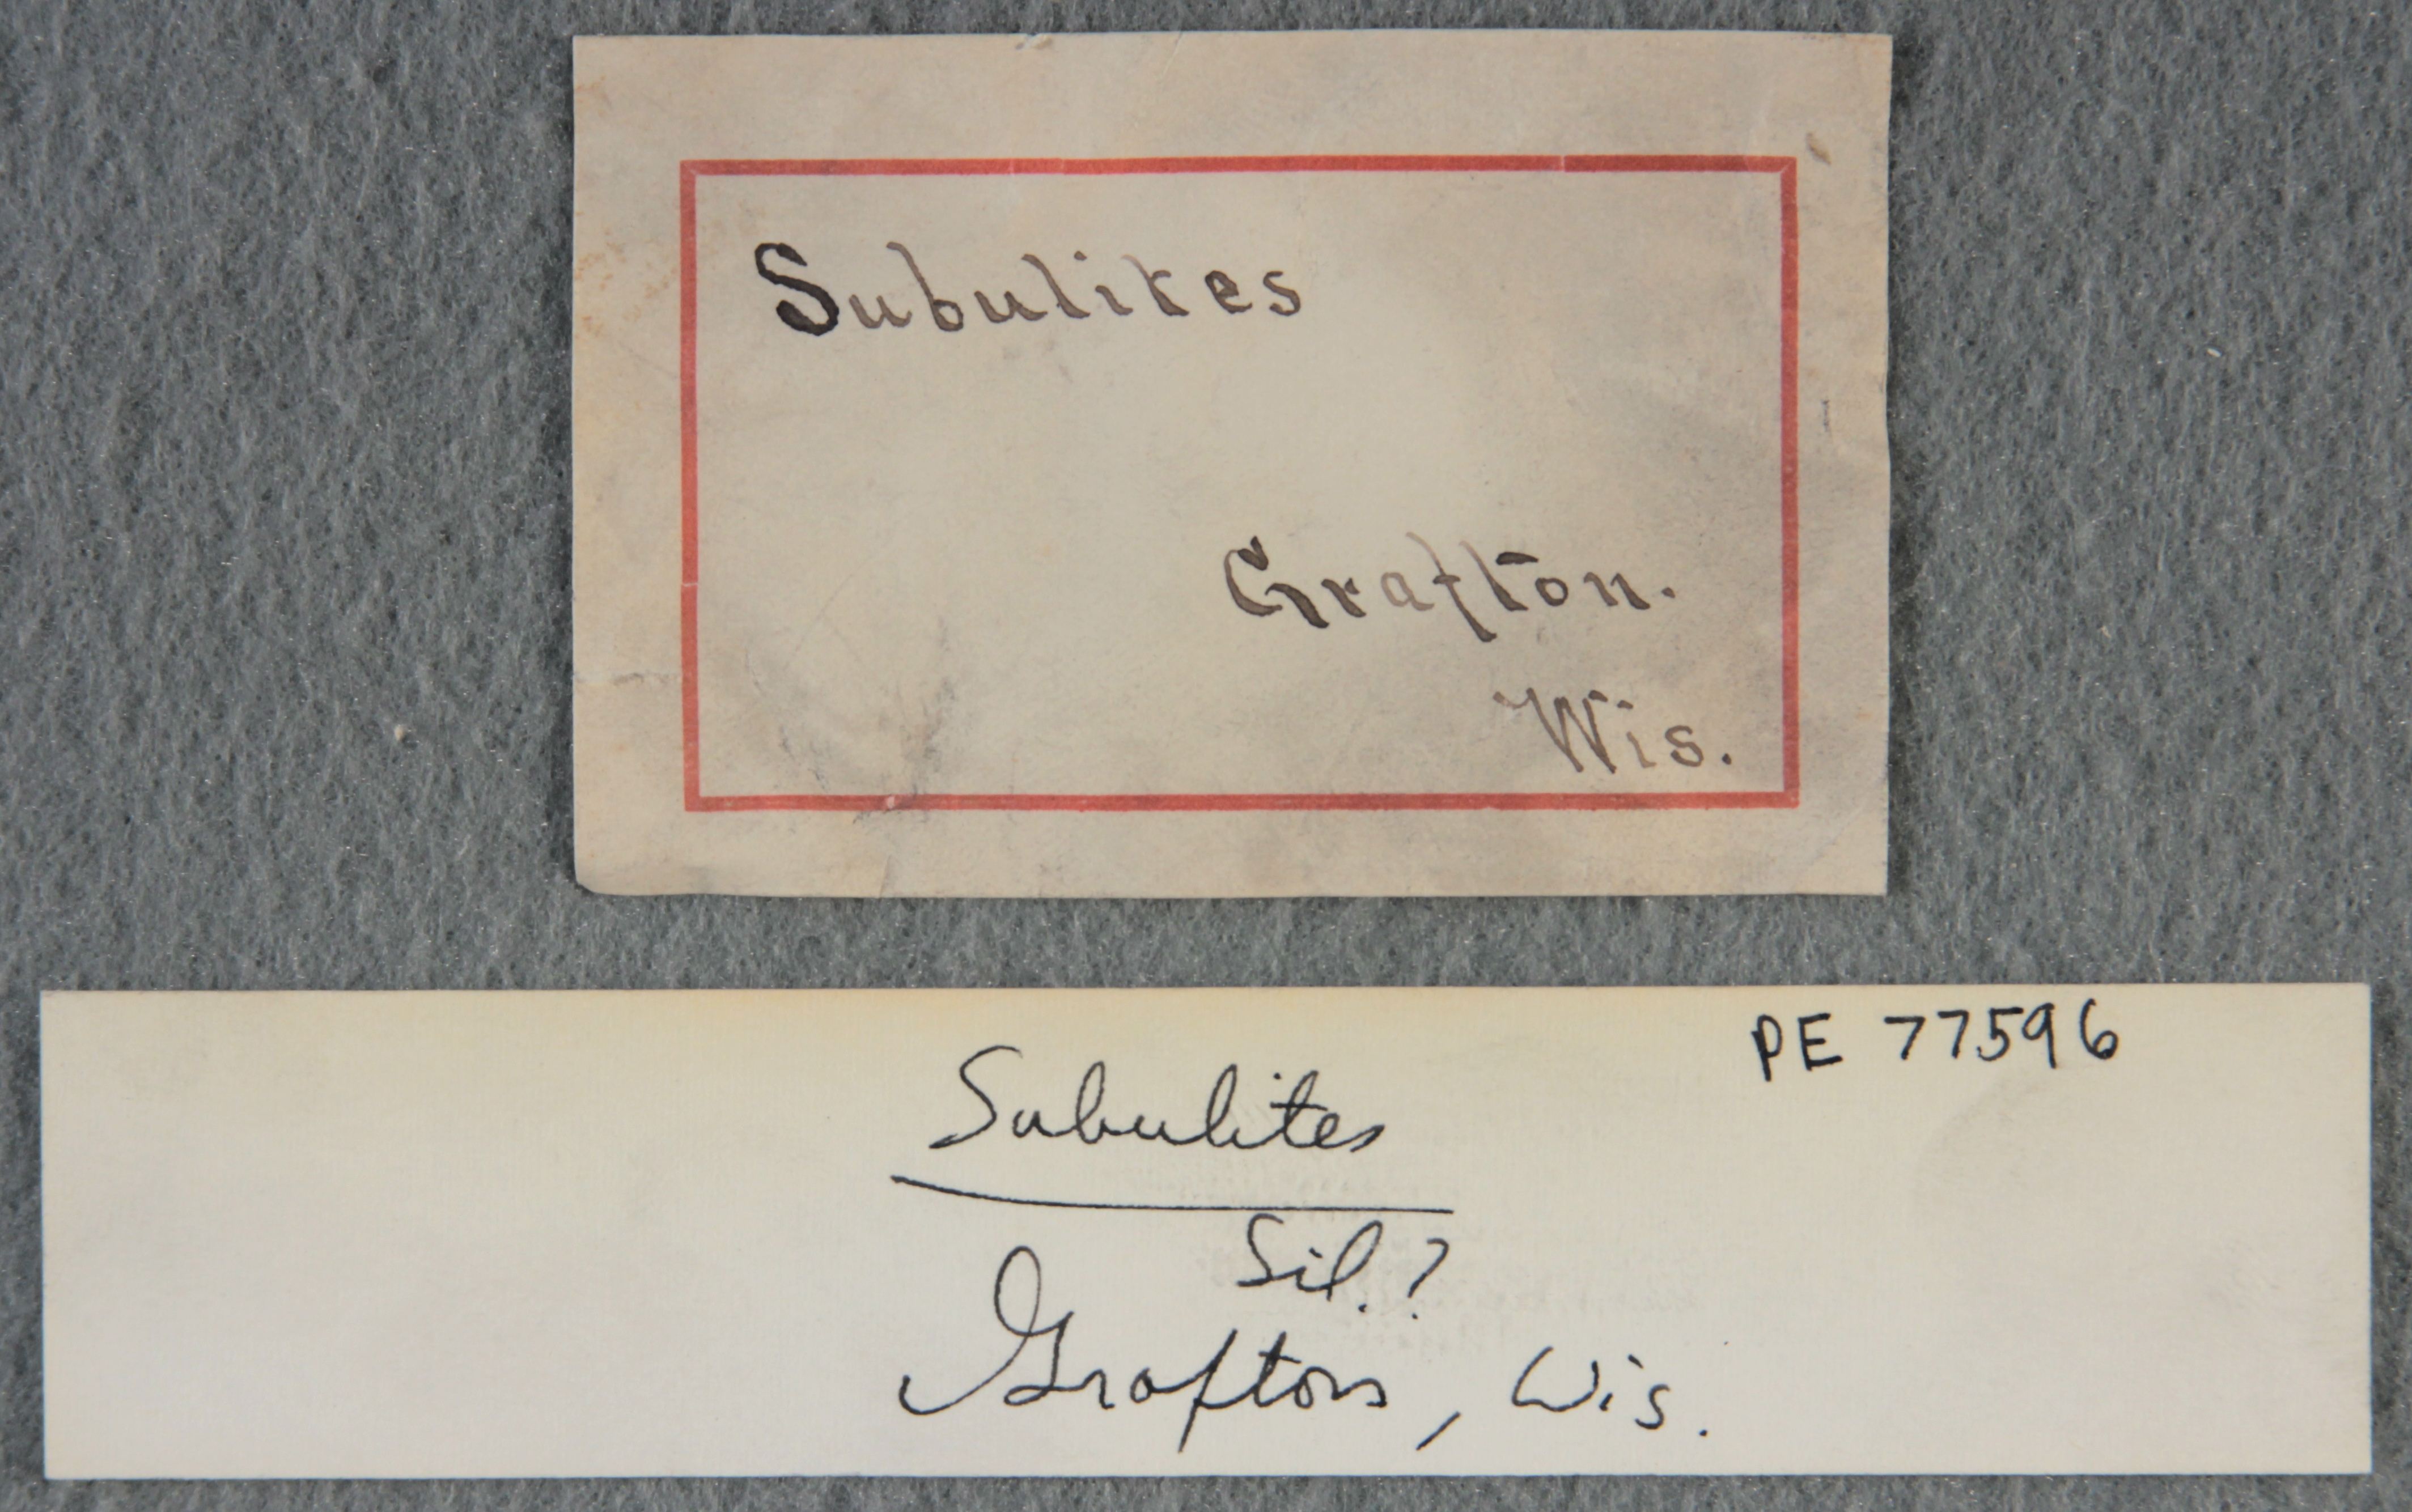 Subulites
Grafton.
Wis.
PE 77596
Subulites
Sil.?
Grafton, Wis.